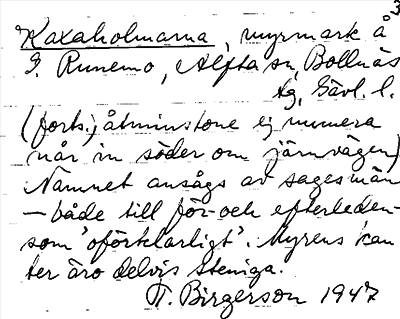 3
Kaxaholmarna, myrmark å
G. Runemo, Alfta sn, Bollnäs
tg, Gävl. l.
(forts.) åtminstone ej numera
når in söder om järnvägen)
Namnet ansågs av sagesmän
– både till för- och efterleden –
som 'oförklarligt'. Myrens kan
ter äro delvis steniga.
T. Birgerson 1947